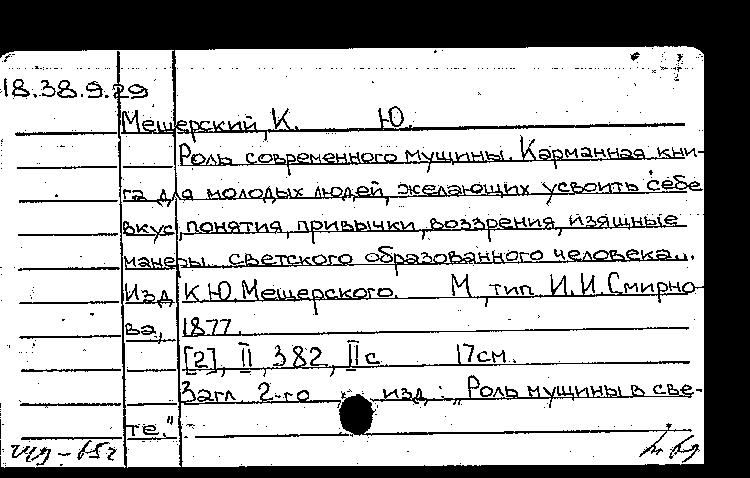 18.38.9.29
Мещерский, К. Ю.
Роль современного мущины. Карманная кни-
га для молодых людей, желающих усвоить себе
вкус, понятия, привычки, воззрения, изящные
манеры светского образованного человека...
Изд. К.Ю. Мещерского. М., тип. И.И. Смирно-
ва, 1877.
[2], II, 382, II с 17см.
Загл. 2-го изд.: „Роль мущины в све-
те."